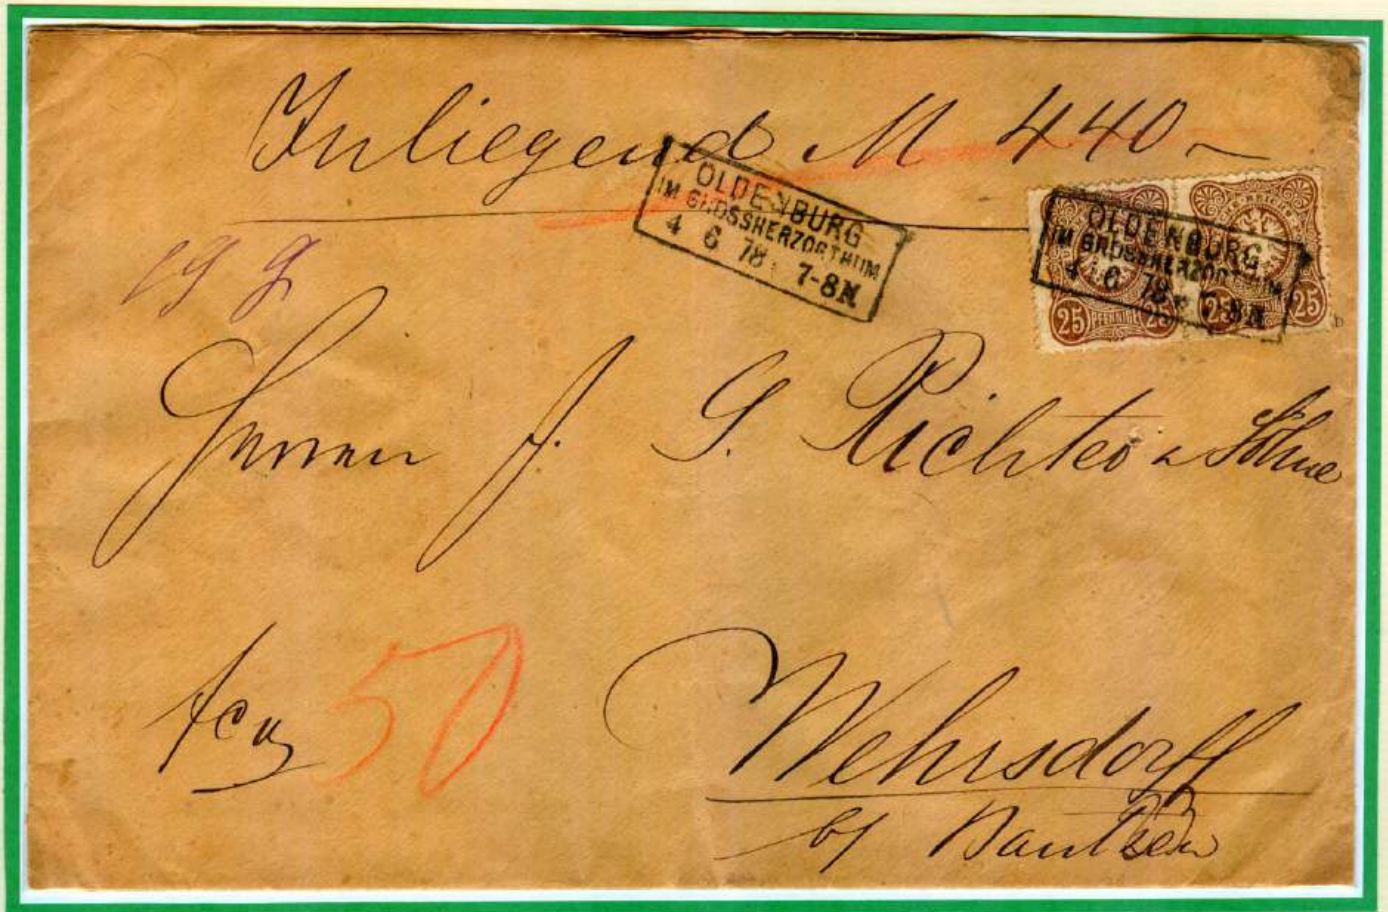 Inliegend M 440 –
OLDENBURG
IM GROSSHERZOGTHUM
4 6 78 7-8 N
OLDENBURG
IM GROSSHERZOGTHUM
4 6 78 7-8 N
25 PFENNIGE 25
25 25
Herren J. G. Richter u Söhne
fco
50
Wehrsdorff
b/ Bautzen